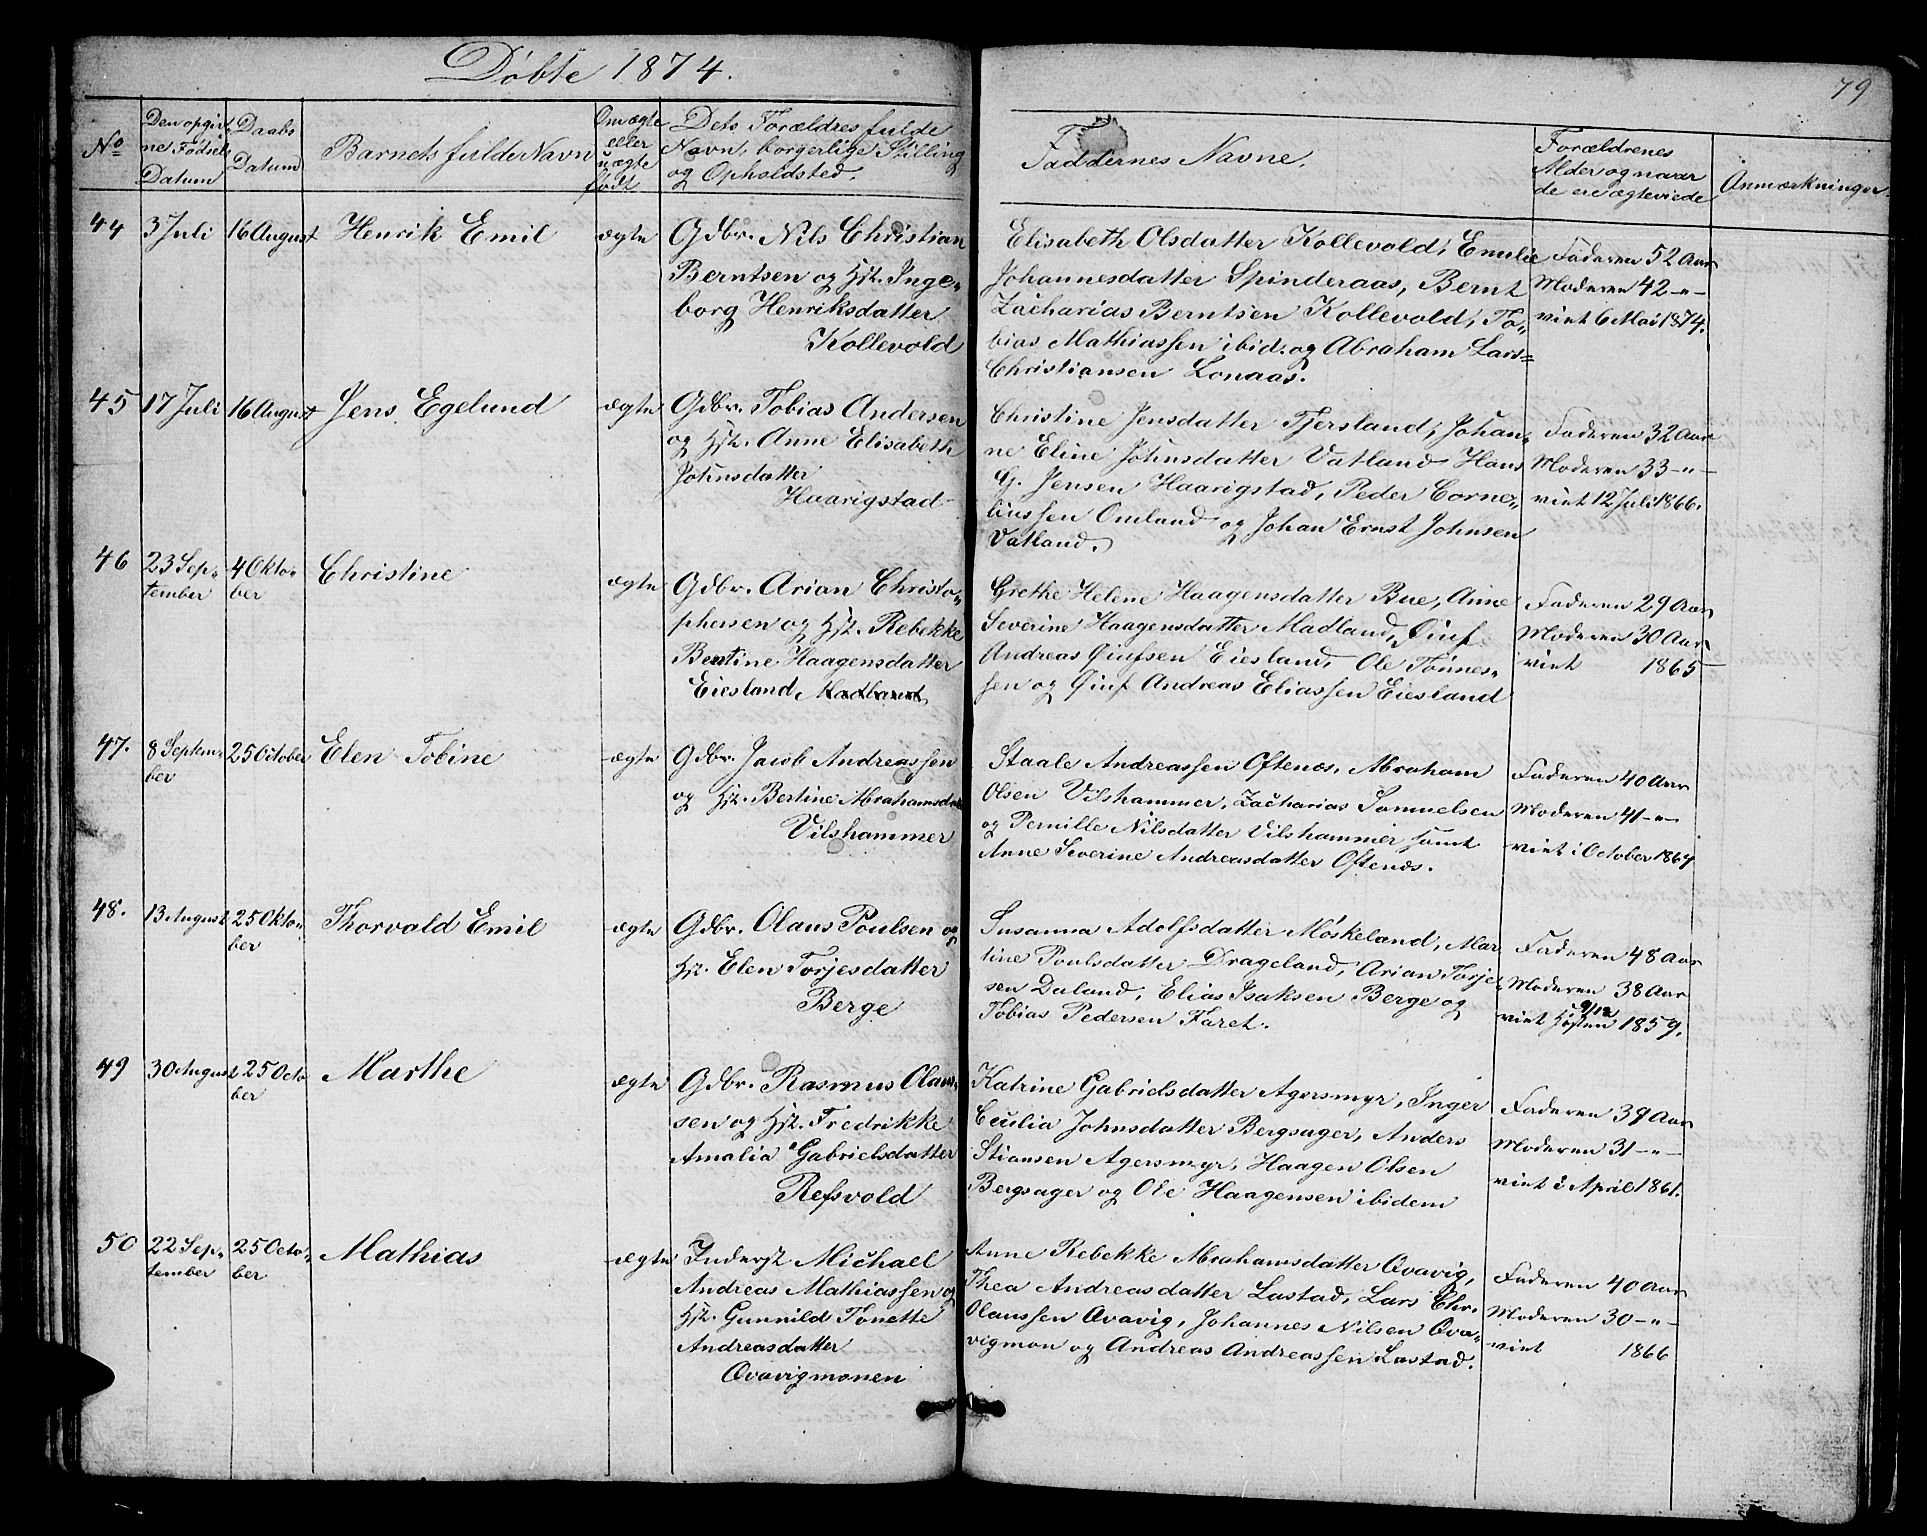 Döbte 1874.
79
No
Den opgivne Födsels Datum
Daabs Datum
Barnets fulde Navn
Om ægte eller uægte födt
Dets Forældres fulde Navn, borgerlige Stilling og Opholdsted.
Faddernes Navne.
Forældrenes Alder og naar de ere ægteviede
Anmærkninger
44 3 Juli 16 August Henrik Emil ægte
Gdbr. Nils Christian
Berntsen og Hst. Inge-
borg Henriksdatter
Kollevold
Elisabeth Olsdatter Kollevold, Emelie
Johannesdatter Spinderaas, Bernt
Zacharias Berntsen Kollevold, To-
bias Mathiassen ibid. og Abraham Lars=
Christiansen Lonaas.
Faderen 52 Aar
Moderen 42 -"-
viet 6 Mai 1874.
45 17 Juli 16 August Jens Egelund ægte
Gdbr. Tobias Andersen
og Hst. Anne Elisabeth
Johnsdatter
Haarigstad
Christine Jensdatter Fjersland, Johan-
ne Eline Johnsdatter Vatland Hans
G. Jensen Haarigstad, Peder Corne-
liussen Omland og Johan Ernst Johnsen
Vatland.
Faderen 32 Aar
Moderen 33 -"-
viet 12 Juli 1866.
46 23 Sep- 4 Okto- Christine ægte
tember ber
Gdbr. Arian Christo-
phersen og Hst. Rebekke
Bentine Haagensdatter
Eiesland, Madland
Grethe Helene Haagensdatter Bue, Anne
Severine Haagensdatter Madland,
Andreas Eiesland, Ole Tönnes-
sen og Andreas Eliassen Eiesland
Faderen 29 Aar
Moderen 30 Aar
viet 1865
47. 8 Septem- 25 October Elen Tobine ægte
ber
Gdbr. Jacob Andreassen
og Hst. Bertine Abrahamsdat
Vilshammer
Staale Andreassen Oftenæs, Abraham
Olsen Vilshammer, Zacharias Samuelsen
og Pernille Nilsdatter Vilshammer samt
Anne Severine Andreasdatter Oftenæs.
Faderen 40 Aar
Moderen 41 -"-
viet i October 1864
48. 13 August 25 Okto- Thorvald Emil ægte
ber
Gdbr. Olaus Poulsen og
Hst. Elen Torjesdatter
Berge
Susanna Adolfsdatter Möskeland, Mar
tine Poulsdatter Drageland, Arian Torje
sen Daland, Elias Isaksen Berge og
Tobias Pedersen Faret.
Faderen 48 Aar
Moderen 38 Aar
9/12
viet Hösten 1859.
49 30 August 25 Octo Marthe ægte
ber
Gdbr. Rasmus Olaus-
sen og Hst. Fredrikke
Amalia Gabrielsdatter
Refsvold
Katrine Gabrielsdatter Agersmyr, Inger
Cecilia Johnsdatter Bergsager, Anders
Stiansen Agersmyr, Haagen Olsen
Bergsager og Ole Haagensen ibidem
Faderen 39 Aar
Moderen 31 -"-
viet i April 1861.
50 22 Sep- 25 Octo- Mathias ægte
tember ber
Inderst Michael
Andreas Mathiassen og
Hst. Gunnild Tonette
Andreasdatter
Qvavigmonen
Anne Rebekke Abrahamsdatter Qvavig,
Thea Andreasdatter Lastad, Lars Chr.
Olaussen Qvavig, Johannes Nilsen Qva-
vigmon og Andreas Andreassen Lastad.
Faderen 40 Aar
Moderen 30 -"-
viet 1866